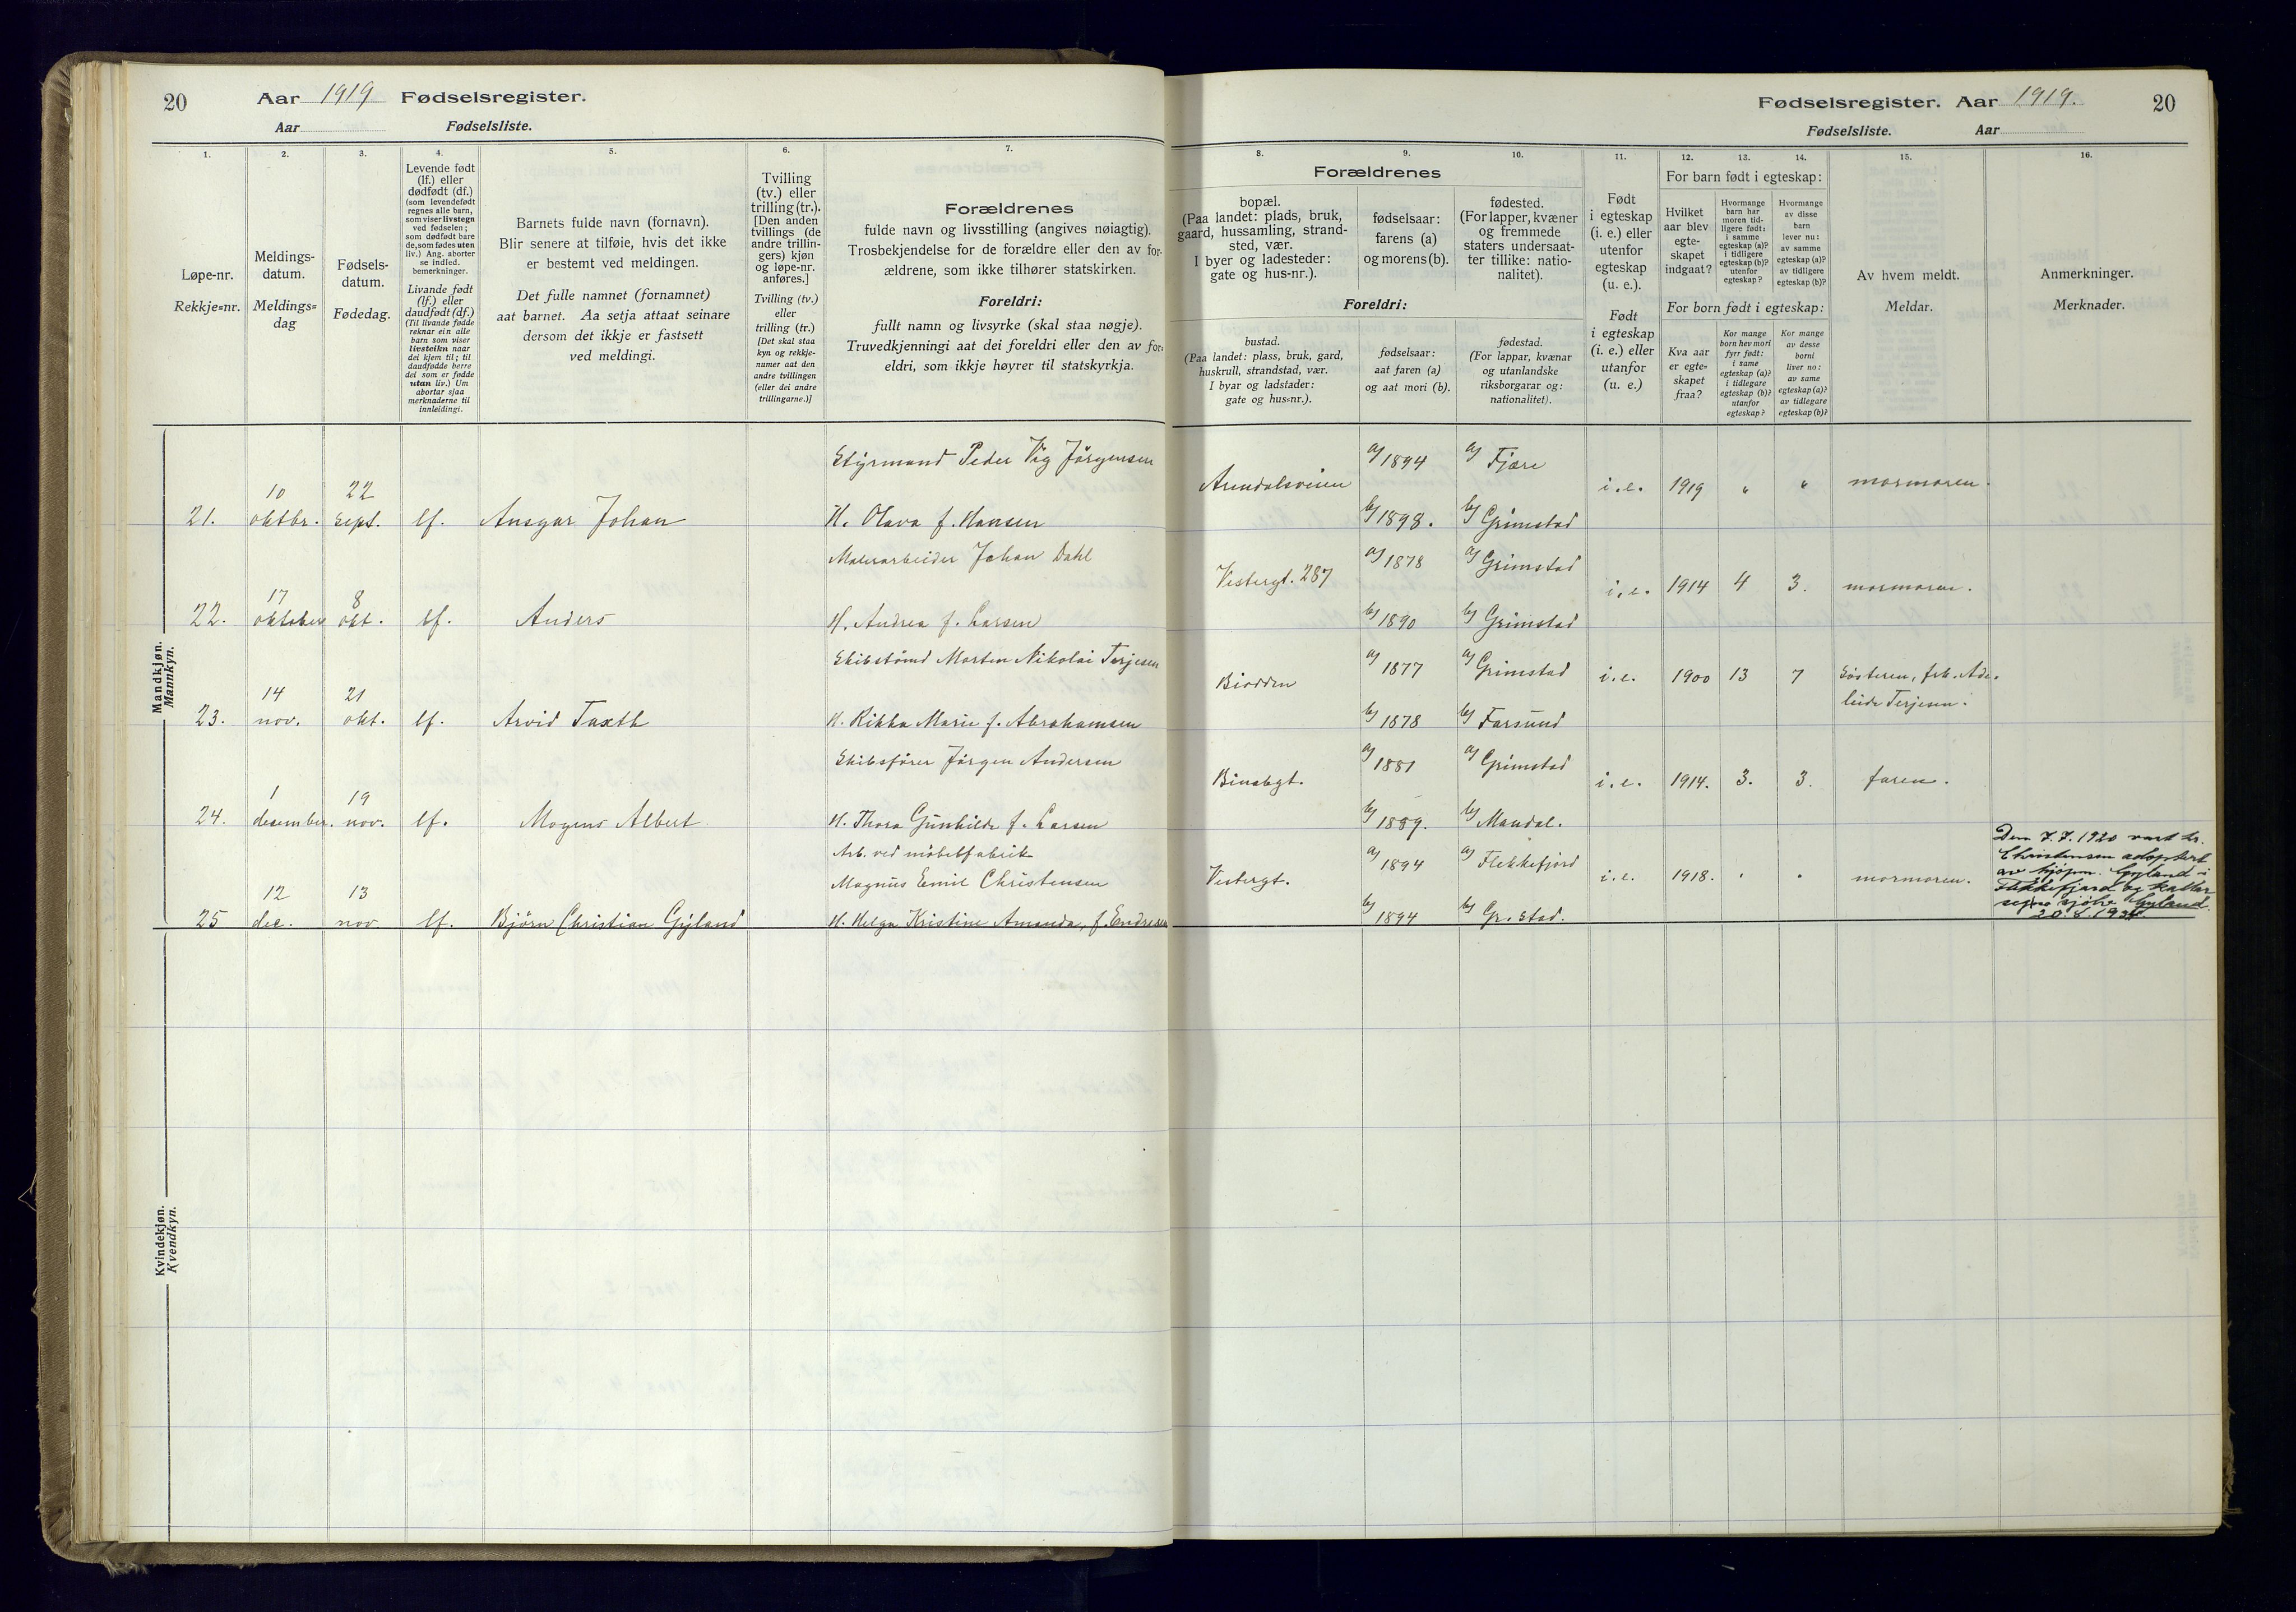 20
Aar 1919 Fødselsregister.
Aar Fødselsliste.
1.
Løpe-nr.
Rekkje=nr.
2.
Meldings-
datum.
Meldings=
dag
3.
Fødsels-
datum.
Fødedag.
4.
Levende født
(lf.) eller
dødfødt (df.)
(som levendefødt
regnes alle barn,
som viser livstegn
ved fødselen;
som dødfødt bare
de, som fødes uten
liv.) Ang. aborter
se indled.
bemerkninger.
Livande født
(lf.) eller
daudfødt (df.)
(Til livande fødde
reknar ein alle
barn som viser
livsteikn naar
dei kjem til; til
daudfødde berre
dei som er fødde
utan liv.) Um
abortar sjaa
merknaderne til
innleidingi.
5.
Barnets fulde navn (fornavn).
Blir senere at tilføie, hvis det ikke
er bestemt ved meldingen.
Det fulle namnet (fornamnet)
aat barnet. Aa setja attaat seinare
dersom det ikkje er fastsett
ved meldingi.
6.
Tvilling
(tv.) eller
trilling (tr.).
[Den anden
tvillings (de
andre trillin-
gers) kjøn
og løpe-nr.
anføres.]
Tvilling (tv.)
eller
trilling (tr.)
[Det skal staa
kyn og rekkje-
numer aat den
andre tvillingen
(eller dei andre
trillingarne.)]
7.
Forældrenes
fulde navn og livsstilling (angives nøiagtig).
Trosbekjendelse for de forældre eller den av for-
ældrene, som ikke tilhører statskirken.
Foreldri:
fullt namn og livsyrke (skal staa nøgje).
Truvedkjenningi aat dei foreldri eller den av for-
eldri, som ikkje høyrer til statskyrkja.
Mandkjøn.
Mannkyn.
Styrmand Peder Vig Jörgensen
10 22
21. oktbr. sept. lf. Ansgar Johan H. Olava f. Hansen
Malerarbeider Johan Dahl
17 8
22. oktober okt. lf. Anders H. Andrea f. Larsen
Skibstömd Morten Nikolai Terjesen
14 21
23. nov. okt. lf. Arvid Taxth H. Rikka Marie f. Abrahamsen
Skibsfører Jörgen Andersen
1 19
24. desember. nov. lf. Mogens Albert H. Thora Gunhilde f. Larsen
Arb. ved möbelfabrik
Magnus Emil Christensen
12 13
25 dec. nov. lf. Björn Christian Gyland H. Helga Kristine Amanda, f. Endresen
Kvindekjøn.
Kvendkyn.
Fødselsregister. Aar 1919. 20
Fødselsliste. Aar
8. 9. 10.
Forældrenes
bopæl.
(Paa landet: plads, bruk,
gaard, hussamling, strand-
sted, vær.
I byer og ladesteder:
gate og hus-nr.).
fødselsaar:
farens (a)
og morens (b).
fødested.
(For lapper, kvæner
og fremmede
staters undersaat-
ter tillike: natio-
nalitet).
Foreldri:
bustad.
(Paa landet: plass, bruk, gard,
huskrull, strandstad, vær.
I byar og ladstader:
gate og hus=nr.).
fødselsaar:
aat faren (a)
og aat mori (b).
fødestad.
(For lappar, kvænar
og utanlandske
riksborgarar og:
nationalitet).
11.
Født
i egteskap
(i. e.) eller
utenfor
egteskap
(u. e.).
Født
i egteskap
(i. e.) eller
utanfor
(u. e.)
12. 13. 14.
For barn født i egteskap:
Hvilket
aar blev
egte-
skapet
indgaat?
Hvormange
barn har
moren tid-
ligere født:
i samme
egteskap (a)?
i tidligere
egteskap (b)?
utenfor
egteskap?
Hvormange
av disse
barn
lever nu:
av samme
egteskap (a)?
av tidligere
egteskap (b)?
For born født i egteskap:
Kva aar
er egte=
skapet
fraa?
Kor mange
born hev mori
fyrr født:
i same
egteskap (a)?
i tidlegare
egteskap (b)?
utanfor
egteskap?
Kor mange
av desse
borni
liver no:
av same
egteskap (a)?
av tidlegare
egteskap (b)?
15.
Av hvem meldt.
Meldar.
16.
Anmerkninger.
Merknader.
a) 1894 a) Fjære
Arendalsveien i.e. 1919 " " mormoren.
b) 1898. b) Grimstad
a) 1878 a) Grimstad
Vestergt. 287 i.e. 1914 4 3. mormoren.
b) 1890 b) Grimstad
a) 1877 a) Grimstad
Biodden i.e. 1900 13 7 Søsteren, frk. Ade-
leide Terjesen.
b) 1878 b) Farsund
a) 1881 a) Grimstad
Binabgt. i.e. 1914. 3. 3. faren.
b) 1889. b) Mandal.
a) 1894 a) Flekkefjord
Vestergt. i.e. 1918. " " mormoren.
b) 1894 b) Gr.stad.
Den 7.7.1920 vart br.
Christensen adoptert
av kjøpm. Gyland i
Flekkefjord og kallar
seg no sjølv Gyland.